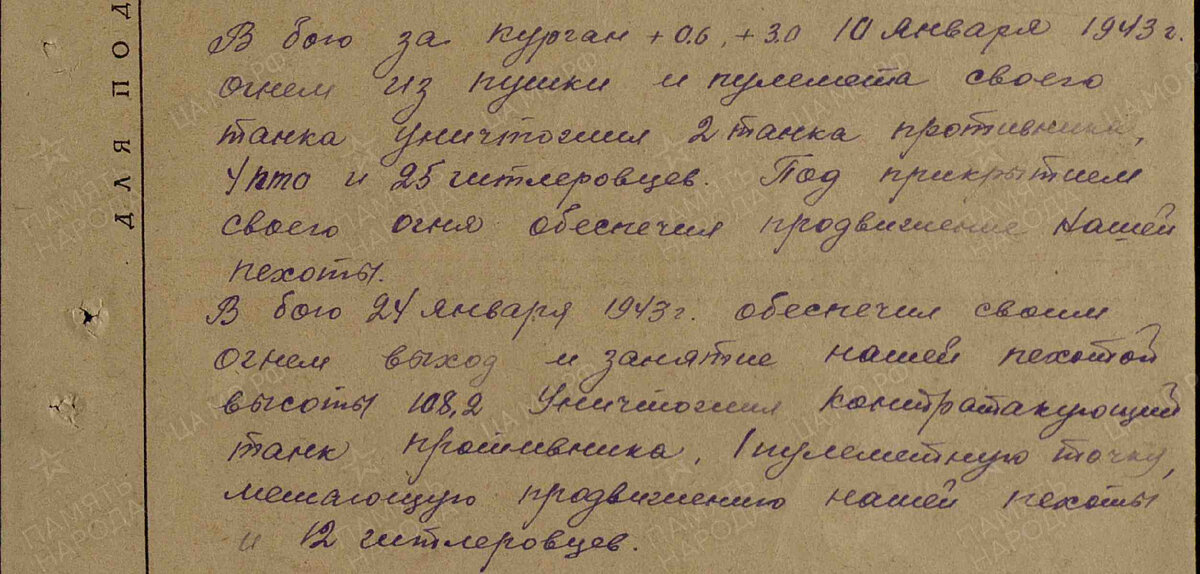 В бою за курган +0.6, +3.0 10 января 1943 г.
огнем из пушки и пулемета своего
танка уничтожил 2 танка противника,
4 пто и 25 гитлеровцев. Под прикрытием
своего огня обеспечил продвижение нашей
пехоты.
В бою 24 января 1943 г. обеспечил своим
огнем выход и занятие нашей пехотой
высоты 108,2 Уничтожил контратакующий
танк противника, 1 пулеметную точку,
мешающую продвижению нашей пехоты
и 12 гитлеровцев.
ДЛЯ ПОД
ПАМЯТЬ НАРОДА
ЦА МО РФ